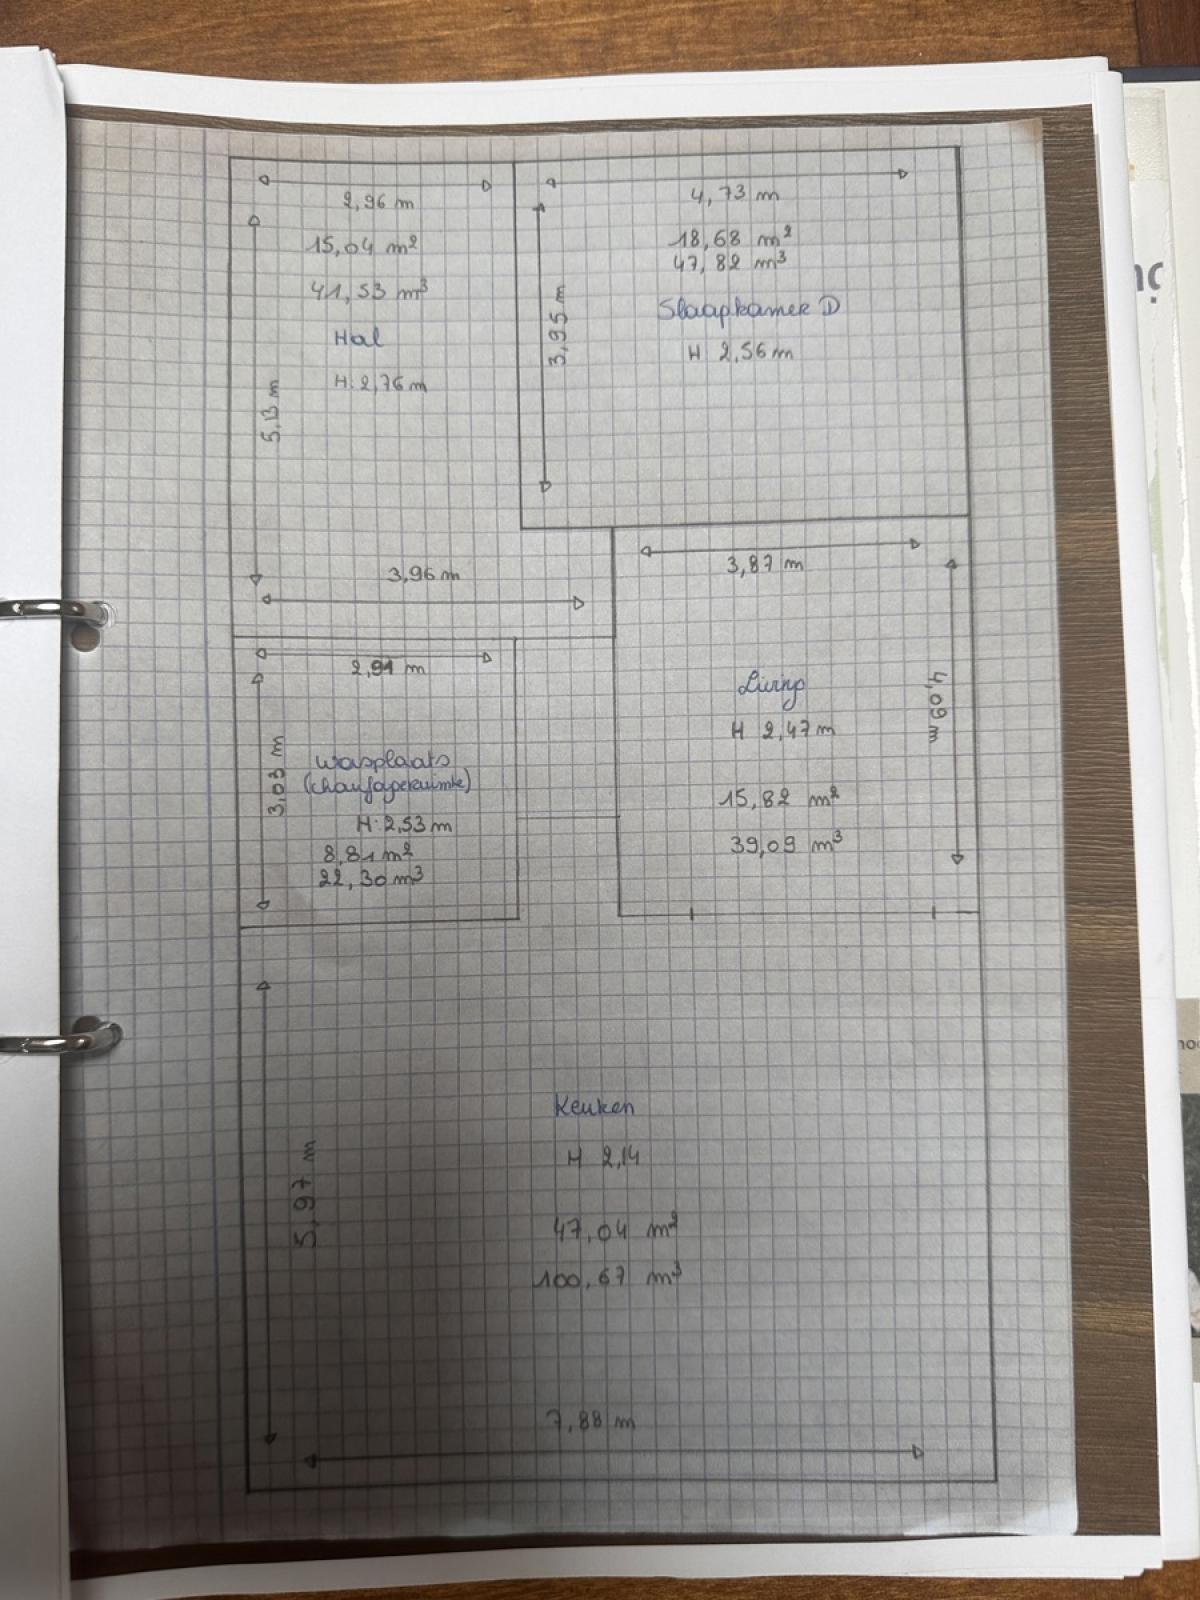 2,96 m
15,04 m²
41,53 m³
Hal
H: 2,76 m
5,13 m
3,96 m
4,73 m
18,68 m²
47,82 m³
Slaapkamer D
H 2,56 m
3,95 m
2,91 m
3,03 m
wasplaats
(chaufageruimte)
H: 2,53 m
8,81 m²
22,30 m³
3,87 m
4,09 m
Living
H 2,47 m
15,82 m²
39,09 m³
5,97 m
Keuken
H 2,14
47,04 m²
100,67 m³
7,88 m